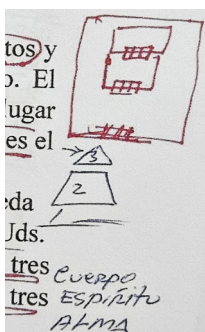 tos) y
o. El
lugar
es el
3
2
eda
Uds.
tres Cuerpo
tres Espíritu
ALMA